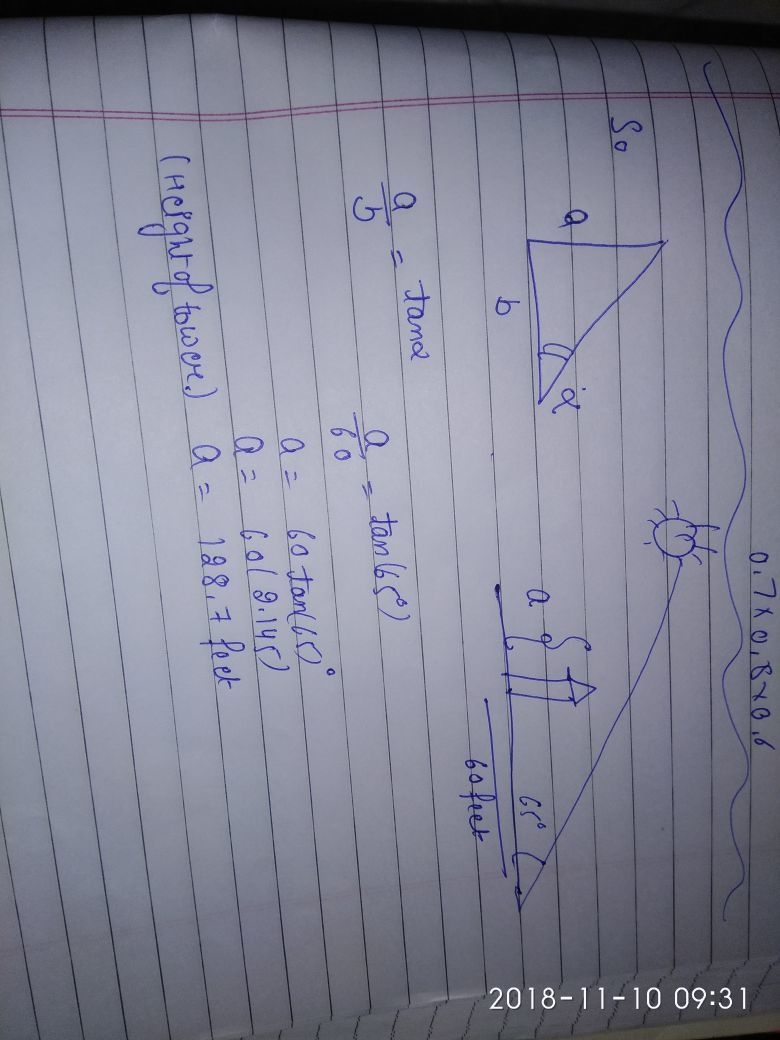 0.7 x 0.8 x 0.6
So
a
b
α
a
65°
60 feet
a/b = tanα
a/60 = tan(65°)
a = 60 tan(65)°
a = 60(2.145)
(Height of tower) a = 128.7 feet
2018-11-10 09:31